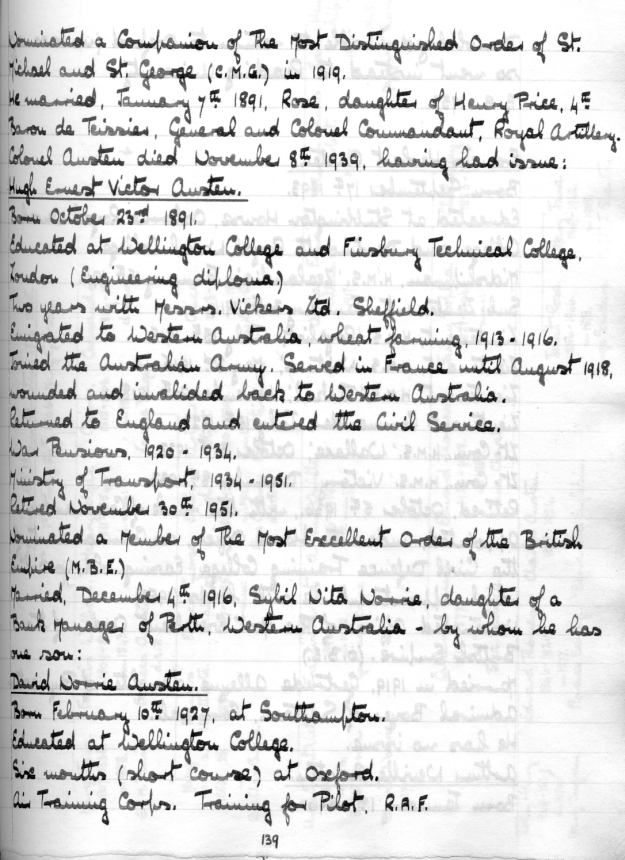 Nominated a Companion of The Most Distinguished Order of St.
Michael and St. George (C.M.G.) in 1919.
He married, January 7th 1891, Rose, daughter of Henry Price, 4th
Baron de Teissier, General and Colonel Commandant, Royal Artillery.
Colonel Austen died November 8th 1939, having had issue:
Hugh Ernest Victor Austen.
Born October 23rd 1891.
Educated at Wellington College and Finsbury Technical College,
London (Engineering diploma)
Two years with Messrs. Vickers Ltd. Sheffield.
Emigrated to Western Australia, wheat farming, 1913 - 1916.
Joined the Australian Army. Served in France until August 1918,
wounded and invalided back to Western Australia.
Returned to England and entered the Civil Service.
War Pensions, 1920 - 1934.
Ministry of Transport, 1934 - 1951.
Retired November 30th 1951.
Nominated a Member of The Most Excellent Order of the British
Empire (M.B.E.)
Married, December 4th 1916, Sybil Nita Norrie, daughter of a
Bank Manager of Perth, Western Australia - by whom he has
one son:
David Norrie Austen.
Born February 10th 1927, at Southampton.
Educated at Wellington College.
Six months (short course) at Oxford.
Air Training Corps. Training for Pilot, R.A.F.
139